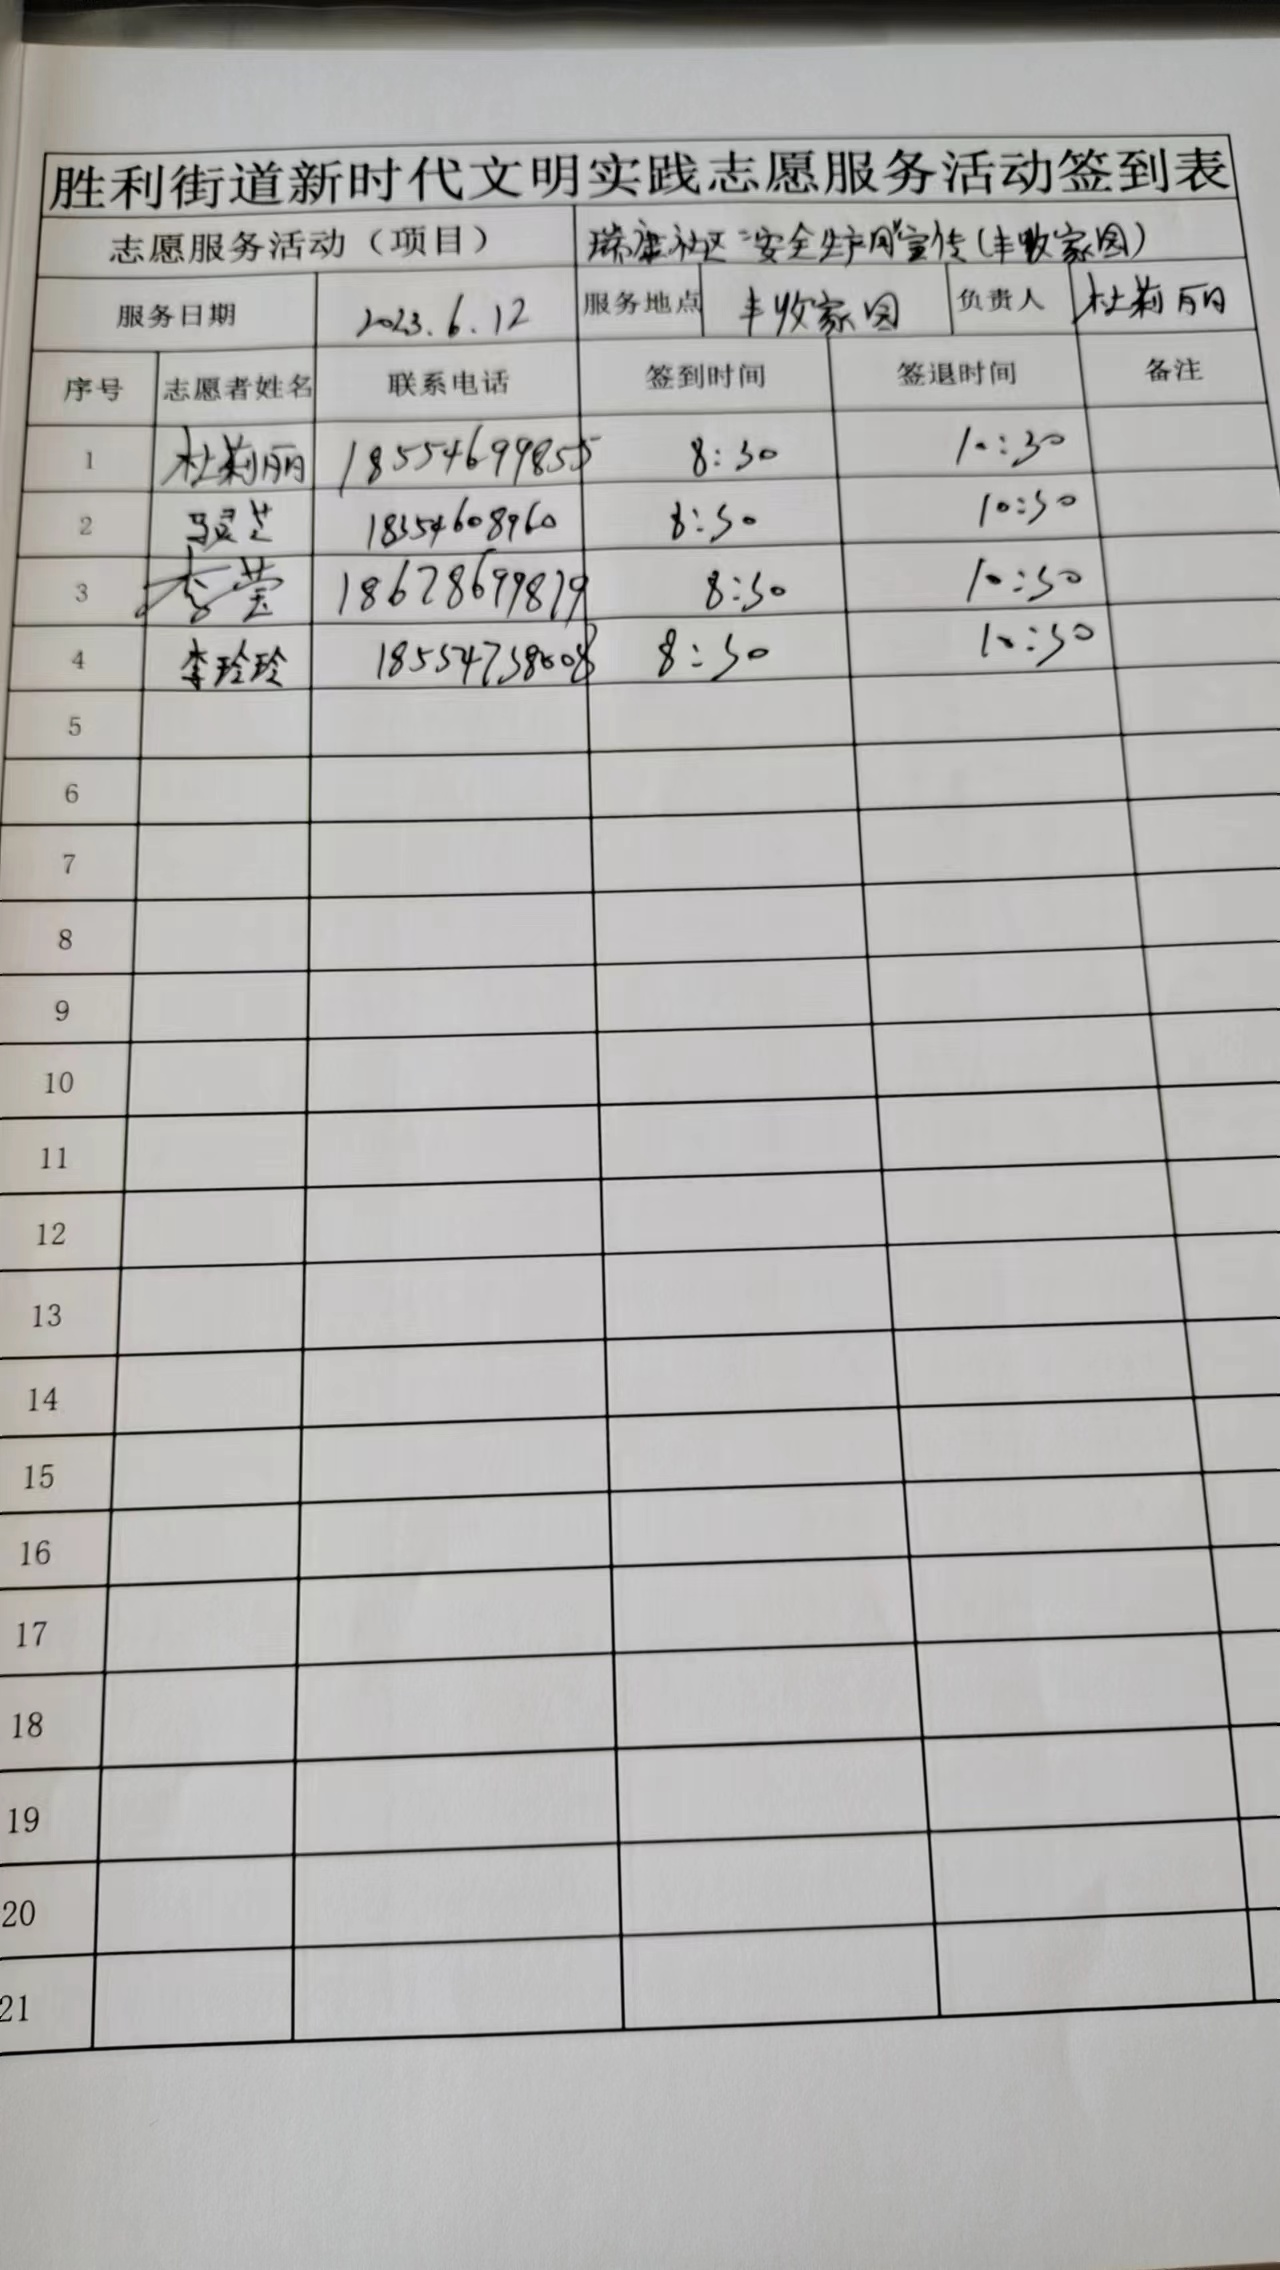 胜利街道新时代文明实践志愿服务活动签到表
志愿服务活动（项目） 瑞康社区“安全生产月”宣传（丰收家园）
服务日期 2023.6.12 服务地点 丰收家园 负责人 杜莉丽
序号 志愿者姓名 联系电话 签到时间 签退时间 备注
1 杜莉丽 18554699855 8:30 10:30
2 马灵芝 18354608960 8:30 10:30
3 李莹 18678699879 8:30 10:30
4 李玲玲 18554738608 8:30 10:30
5
6
7
8
9
10
11
12
13
14
15
16
17
18
19
20
21